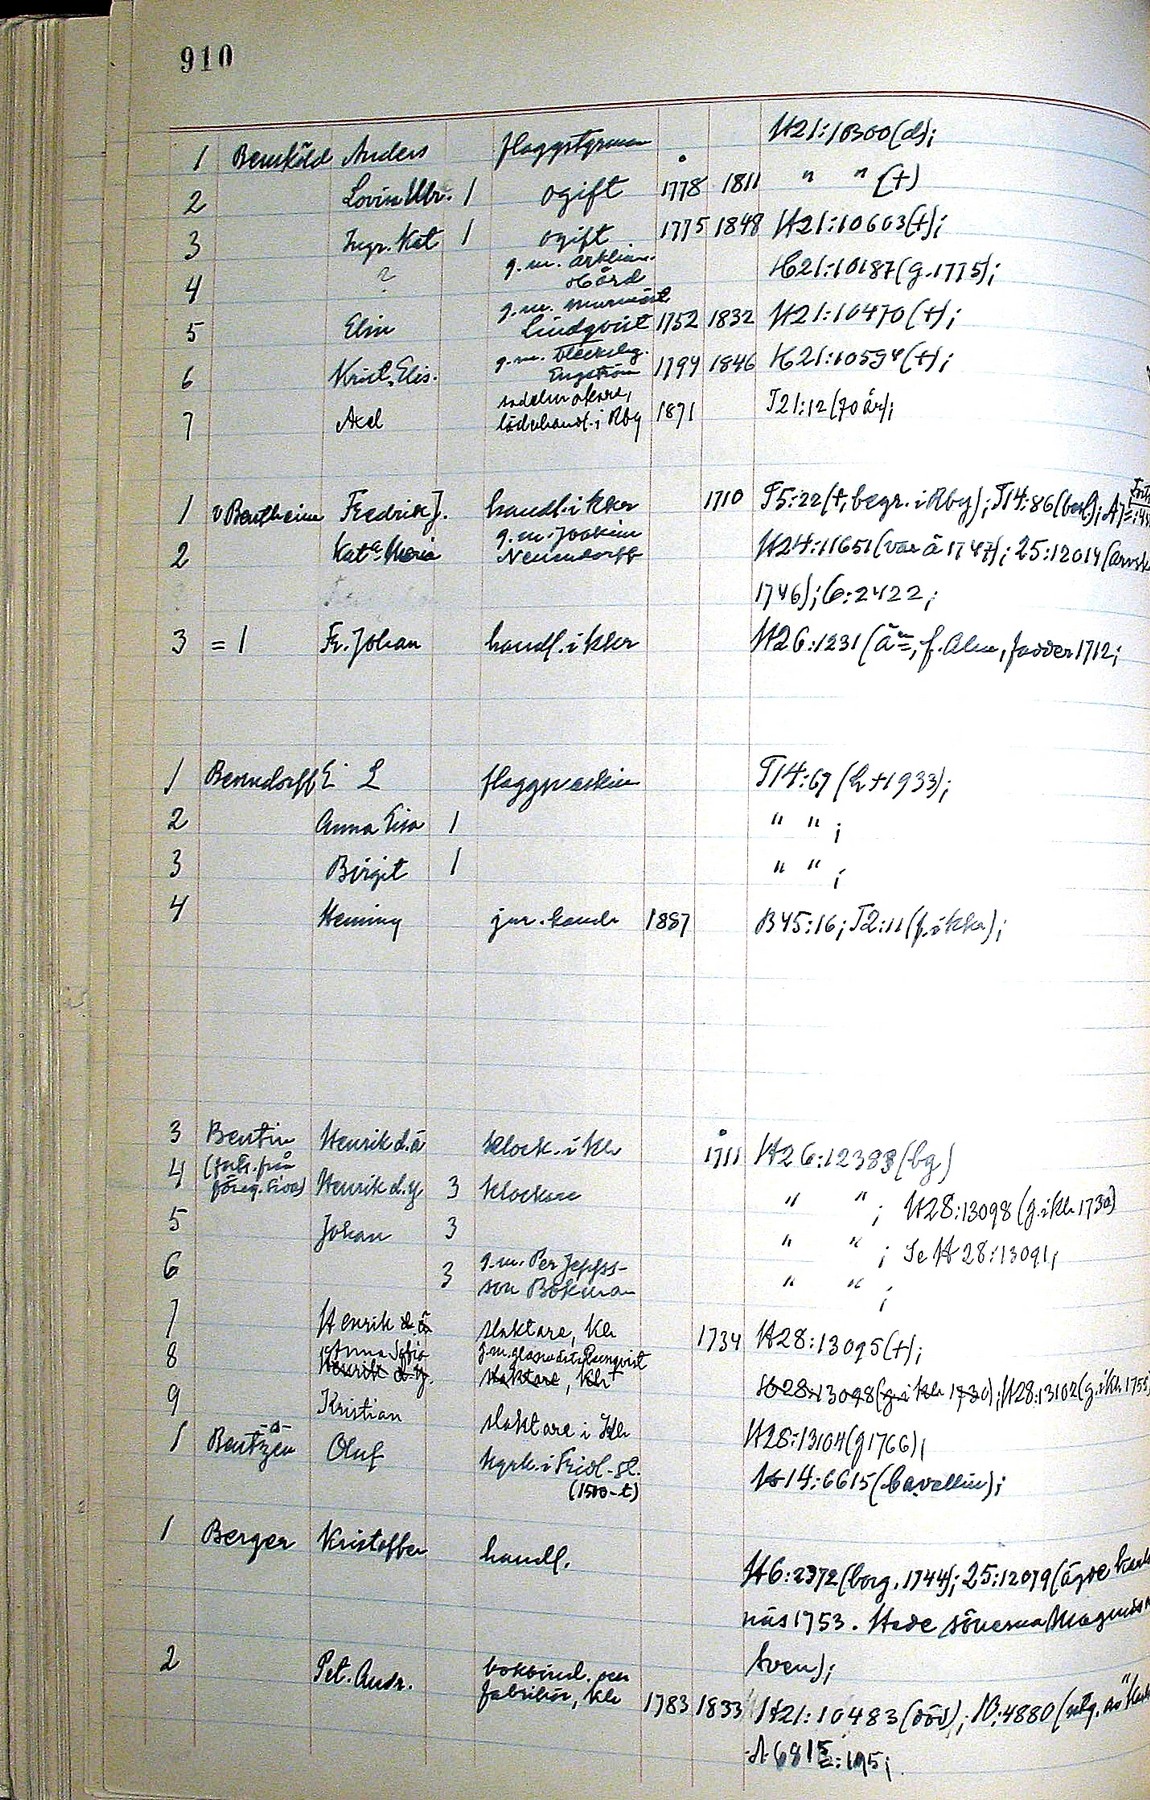 910
1 Bensköld Anders flaggstyrman H21:10300(d);
2 Lovisa Ulr. 1 ogift 1778 1811 " " (†)
3 Ingr. Kat 1 ogift 1775 1848 H21:10603(†);
4 ? g.m. Hård H21:10187(g.1775);
g.m.
5 Elin Lindqvist 1752 1832 H21:10470(†);
g.m.
6 Krist. Elis. Engström 1794 1846 H21:10594(†);
sadelmakare,
7 Axel läderhandl. i Rby 1871 T21:12(70 år);
1 v Bentheim Fredrik J. handl. i kkr 1710 T5:22(†, begr. i Rby); T14:86
g.m. Joakim
2 Kat. Maria Neuendorff H24:11651(var ä 1747); 25:12014
1746); 6:2422;
3 = 1 Fr. Johan handl. i kkr H26:1231 fadder 1712;
1 Benndorff E L flaggmaskin T14:67 (h †1933);
2 Anna Lisa 1 " " ;
3 Birgit 1 " " ;
4 Henning jur. kand 1887 B45:16; T2:11(f. i kka);
3 Bentin Henrik d.ä klock. i Kh 1711 H26:12383(bg)
4 (forts. från föreg. sida) Henrik d.y 3 klockare " " ; H28:13098(g. i kh 1730)
5 Johan 3 " " ; Se H28:13091;
6 3 g.m. Per Jeppsson Bökman " " ;
7 Henrik d.ä slaktare, Kh 1734 H28:13095(†);
Anna Sofia
8 Henrik d.y. slaktare, Kh H28:13098(g. i kh 1730); H28:13102(g. i kh
9 Kristian slaktare i Kh H28:13104(g 1766);
1 Bentzen Oluf kyrk. i Fridl-st. H14:6615(Cavallin);
(1500-t)
1 Berger Kristoffer handl. H6:2372(borg. 1744); 25:12079(ägde
näs 1753. Hade sönerna Magnus
Sven);
2 Pet. Andr. bokbind. och
fabrikör, Kh 1783 1833 H21:10483(död); 10:4880